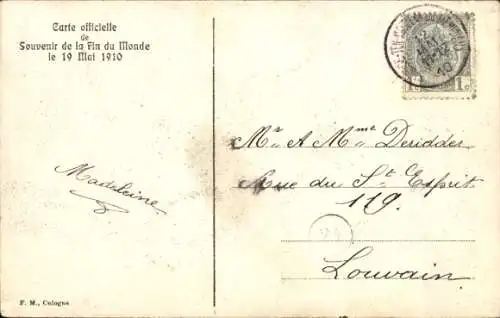 Carte officielle
de
Souvenir de la Fin du Monde
le 19 Mai 1910
Madeleine
F. M., Cologne
1c 1c
10
Mr A Mme Deridder
Rue du St Esprit
119.
Louvain